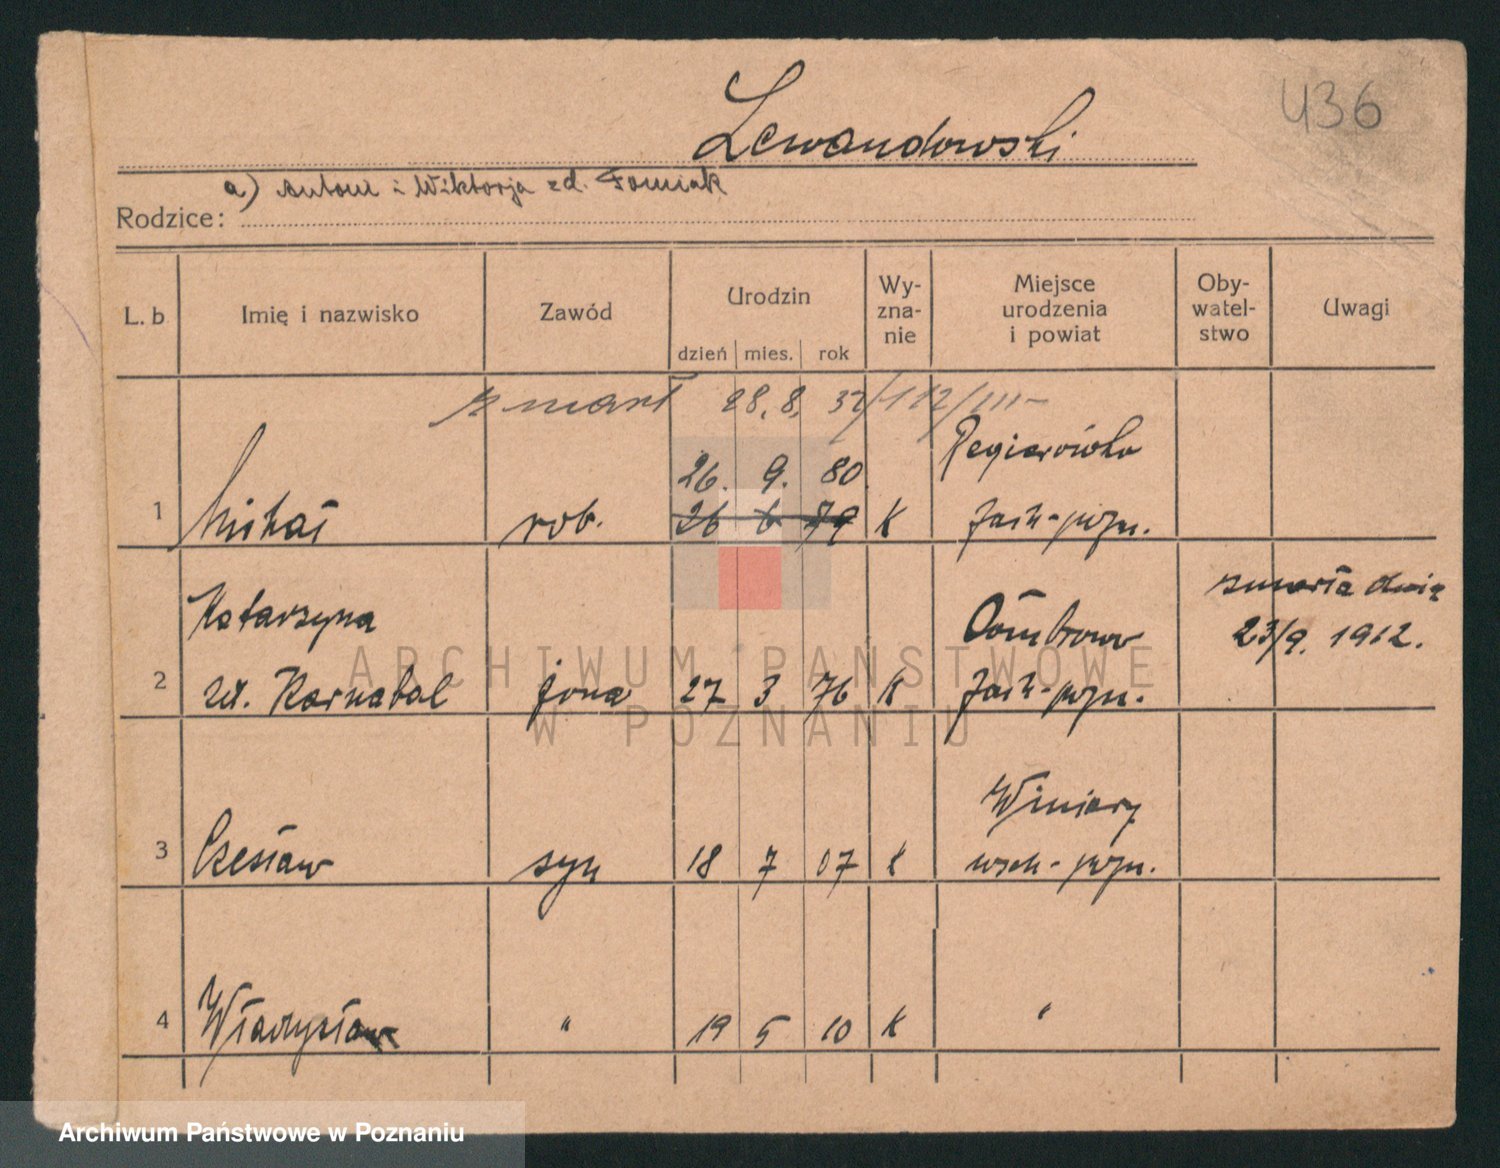 436
Lewandowski
a) Antoni i Wiktorja zd. Tomiak
Rodzice:
L. b
Imię i nazwisko
Zawód
Urodzin
dzień mies. rok
Wy-
zna-
nie
Miejsce
urodzenia
i powiat
Oby-
watel-
stwo
Uwagi
zmarł 28. 8. 37/112/III
1 Michał rob. 26. 9. 80
26 6 79 K
2 Katarzyna
zd. Karnabal żona 27 3 76 K
zmarła dnia
23/9. 1912.
3 Czesław syn 18 7 07 K Winiary
wsch-pozn.
4 Władysław " 19 5 10 K "
ARCHIWUM PAŃSTWOWE
W POZNANIU
Archiwum Państwowe w Poznaniu